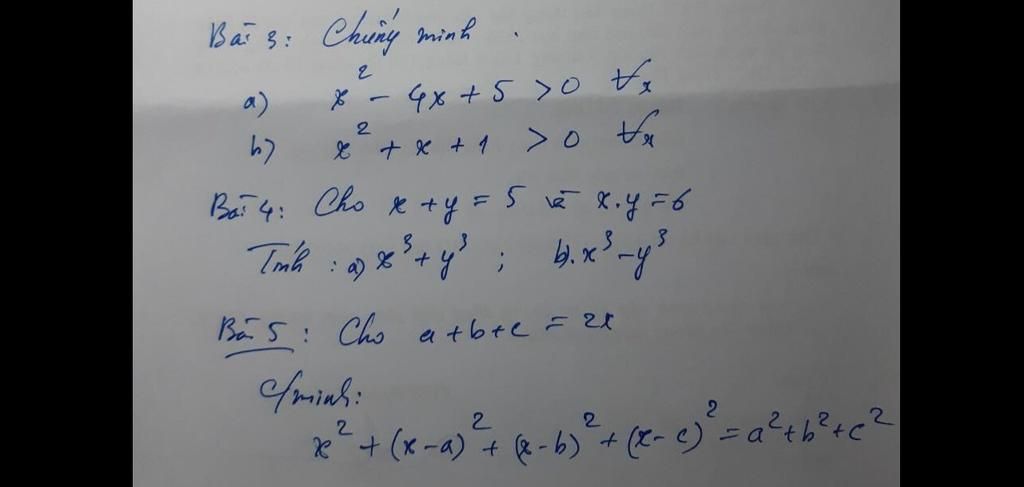 Bài 3: Chứng minh.
a) x² - 4x + 5 > 0 ∀x
b) x² + x + 1 > 0 ∀x
Bài 4: Cho x + y = 5 và x.y = 6
Tính : a) x³ + y³ ; b). x³ - y³
Bài 5: Cho a + b + c = 2x
C/minh:
x² + (x - a)² + (x - b)² + (x - c)² = a² + b² + c²